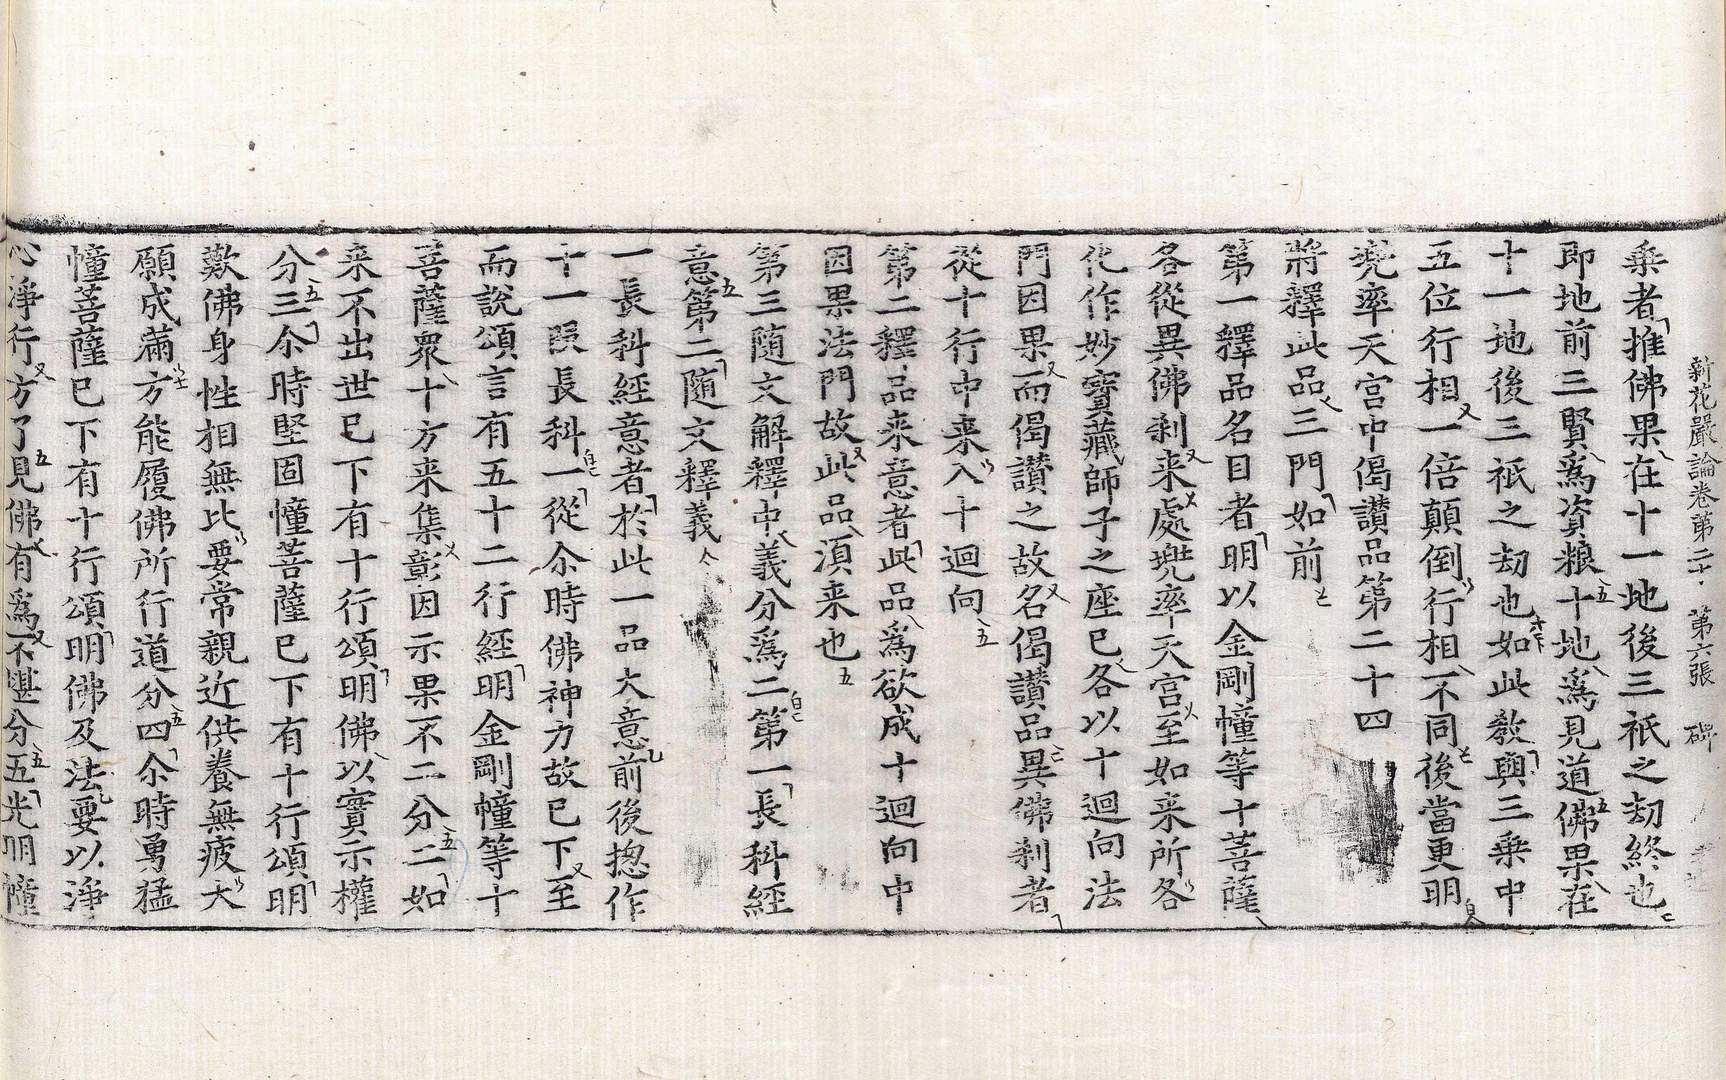 新花嚴論卷第二十 第六張 碑
乘者推佛果在十一地後三祇之劫終也
即地前三賢爲資粮十地爲見道佛果在
十一地後三祇之劫也如此教與三乘中
五位行相一倍顛倒行相不同後當更明
兠率天宮中偈讃品第二十四
將釋此品三門如前
第一釋品名目者明以金剛幢等十菩薩
各從異佛剎来處兠率天宮至如来所各
化作妙寶藏師子之座已各以十迴向法
門因果而偈讃之故名偈讃品異佛剎者
從十行中来入十迴向
第二釋品来意者此品爲欲成十迴向中
因果法門故此品湏来也
第三随文解釋中義分爲二第一長科經
意第二随文釋義
一長科經意者於此一品大意前後揔作
十一段長科一從尒時佛神力故已下至
而說頌言有五十二行經明金剛幢等十
菩薩衆十方来集彰因示果不二分二如
来不出世已下有十行頌明佛以實示權
分三尒時堅固幢菩薩已下有十行頌明
歎佛身性相無比要常親近供養無疲大
願成滿方能履佛所行道分四尒時勇猛
幢菩薩已下有十行頌明佛及法要以淨
心淨行方了見佛有爲不堪分五光明幢